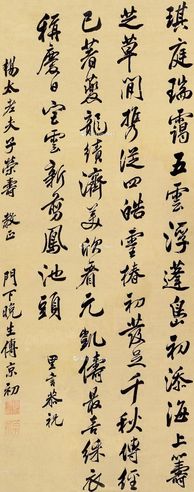 琪庭瑞靄五雲浮蓬島初添海上籌
芝草閒攜從四皓靈椿初發足千秋傳經
已著夔龍績濟美欣看元凱儔最喜綵衣
稱慶日空雲新剪鳳池頭
里言恭祝
楊太老夫子榮壽 教正
門下晚生傅京初